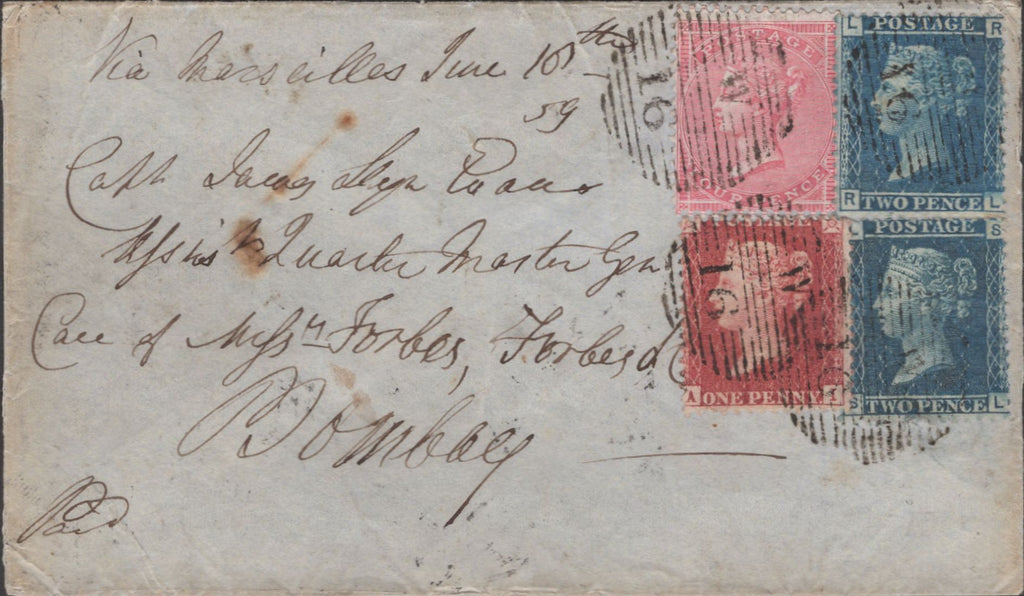 Via Marseilles June 10th
59
Capt James Llyn Evans
Assist Quarter Master Gen
Care of Messrs Forbes, Forbes & Co
Bombay
Paid
POSTAGE
FOUR PENCE
W
16
L POSTAGE R
16
R TWO PENCE L
W
16
A ONE PENNY
L POSTAGE S
S TWO PENCE L